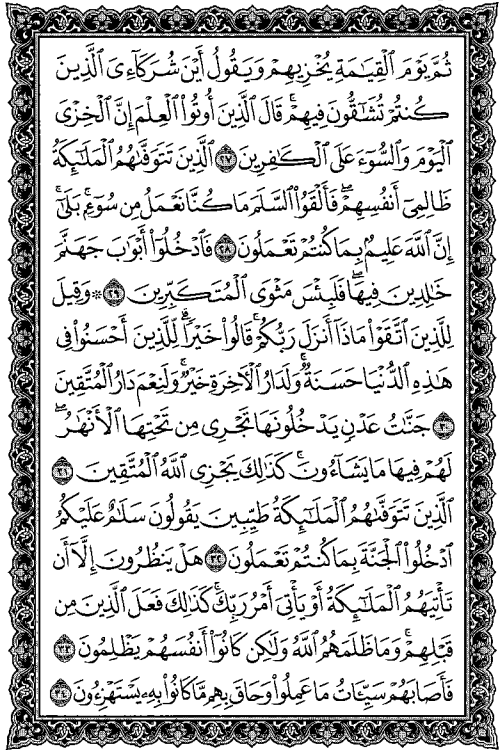 ثُمَّ يَوْمَ ٱلْقِيَٰمَةِ يُخْزِيهِمْ وَيَقُولُ أَيْنَ شُرَكَآءِىَ ٱلَّذِينَ
كُنتُمْ تُشَٰٓقُّونَ فِيهِمْ ۚ قَالَ ٱلَّذِينَ أُوتُوا۟ ٱلْعِلْمَ إِنَّ ٱلْخِزْىَ
ٱلْيَوْمَ وَٱلسُّوٓءَ عَلَى ٱلْكَٰفِرِينَ ٢٧ ٱلَّذِينَ تَتَوَفَّىٰهُمُ ٱلْمَلَٰٓئِكَةُ
ظَالِمِىٓ أَنفُسِهِمْ ۖ فَأَلْقَوُا۟ ٱلسَّلَمَ مَا كُنَّا نَعْمَلُ مِن سُوٓءٍۭ ۚ بَلَىٰٓ ۚ
إِنَّ ٱللَّهَ عَلِيمٌۢ بِمَا كُنتُمْ تَعْمَلُونَ ٢٨ فَٱدْخُلُوٓا۟ أَبْوَٰبَ جَهَنَّمَ
خَٰلِدِينَ فِيهَا ۖ فَلَبِئْسَ مَثْوَى ٱلْمُتَكَبِّرِينَ ٢٩ ۞ وَقِيلَ
لِلَّذِينَ ٱتَّقَوْا۟ مَاذَآ أَنزَلَ رَبُّكُمْ ۚ قَالُوا۟ خَيْرًا ۗ لِّلَّذِينَ أَحْسَنُوا۟ فِى
هَٰذِهِ ٱلدُّنْيَا حَسَنَةٌ ۚ وَلَدَارُ ٱلْءَاخِرَةِ خَيْرٌ ۚ وَلَنِعْمَ دَارُ ٱلْمُتَّقِينَ
٣٠ جَنَّٰتُ عَدْنٍ يَدْخُلُونَهَا تَجْرِى مِن تَحْتِهَا ٱلْأَنْهَٰرُ ۖ
لَهُمْ فِيهَا مَا يَشَآءُونَ ۚ كَذَٰلِكَ يَجْزِى ٱللَّهُ ٱلْمُتَّقِينَ ٣١
ٱلَّذِينَ تَتَوَفَّىٰهُمُ ٱلْمَلَٰٓئِكَةُ طَيِّبِينَ ۙ يَقُولُونَ سَلَٰمٌ عَلَيْكُمُ
ٱدْخُلُوا۟ ٱلْجَنَّةَ بِمَا كُنتُمْ تَعْمَلُونَ ٣٢ هَلْ يَنظُرُونَ إِلَّآ أَن
تَأْتِيَهُمُ ٱلْمَلَٰٓئِكَةُ أَوْ يَأْتِىَ أَمْرُ رَبِّكَ ۚ كَذَٰلِكَ فَعَلَ ٱلَّذِينَ مِن
قَبْلِهِمْ ۚ وَمَا ظَلَمَهُمُ ٱللَّهُ وَلَٰكِن كَانُوٓا۟ أَنفُسَهُمْ يَظْلِمُونَ ٣٣
فَأَصَابَهُمْ سَيِّـَٔاتُ مَا عَمِلُوا۟ وَحَاقَ بِهِم مَّا كَانُوا۟ بِهِۦ يَسْتَهْزِءُونَ ٣٤